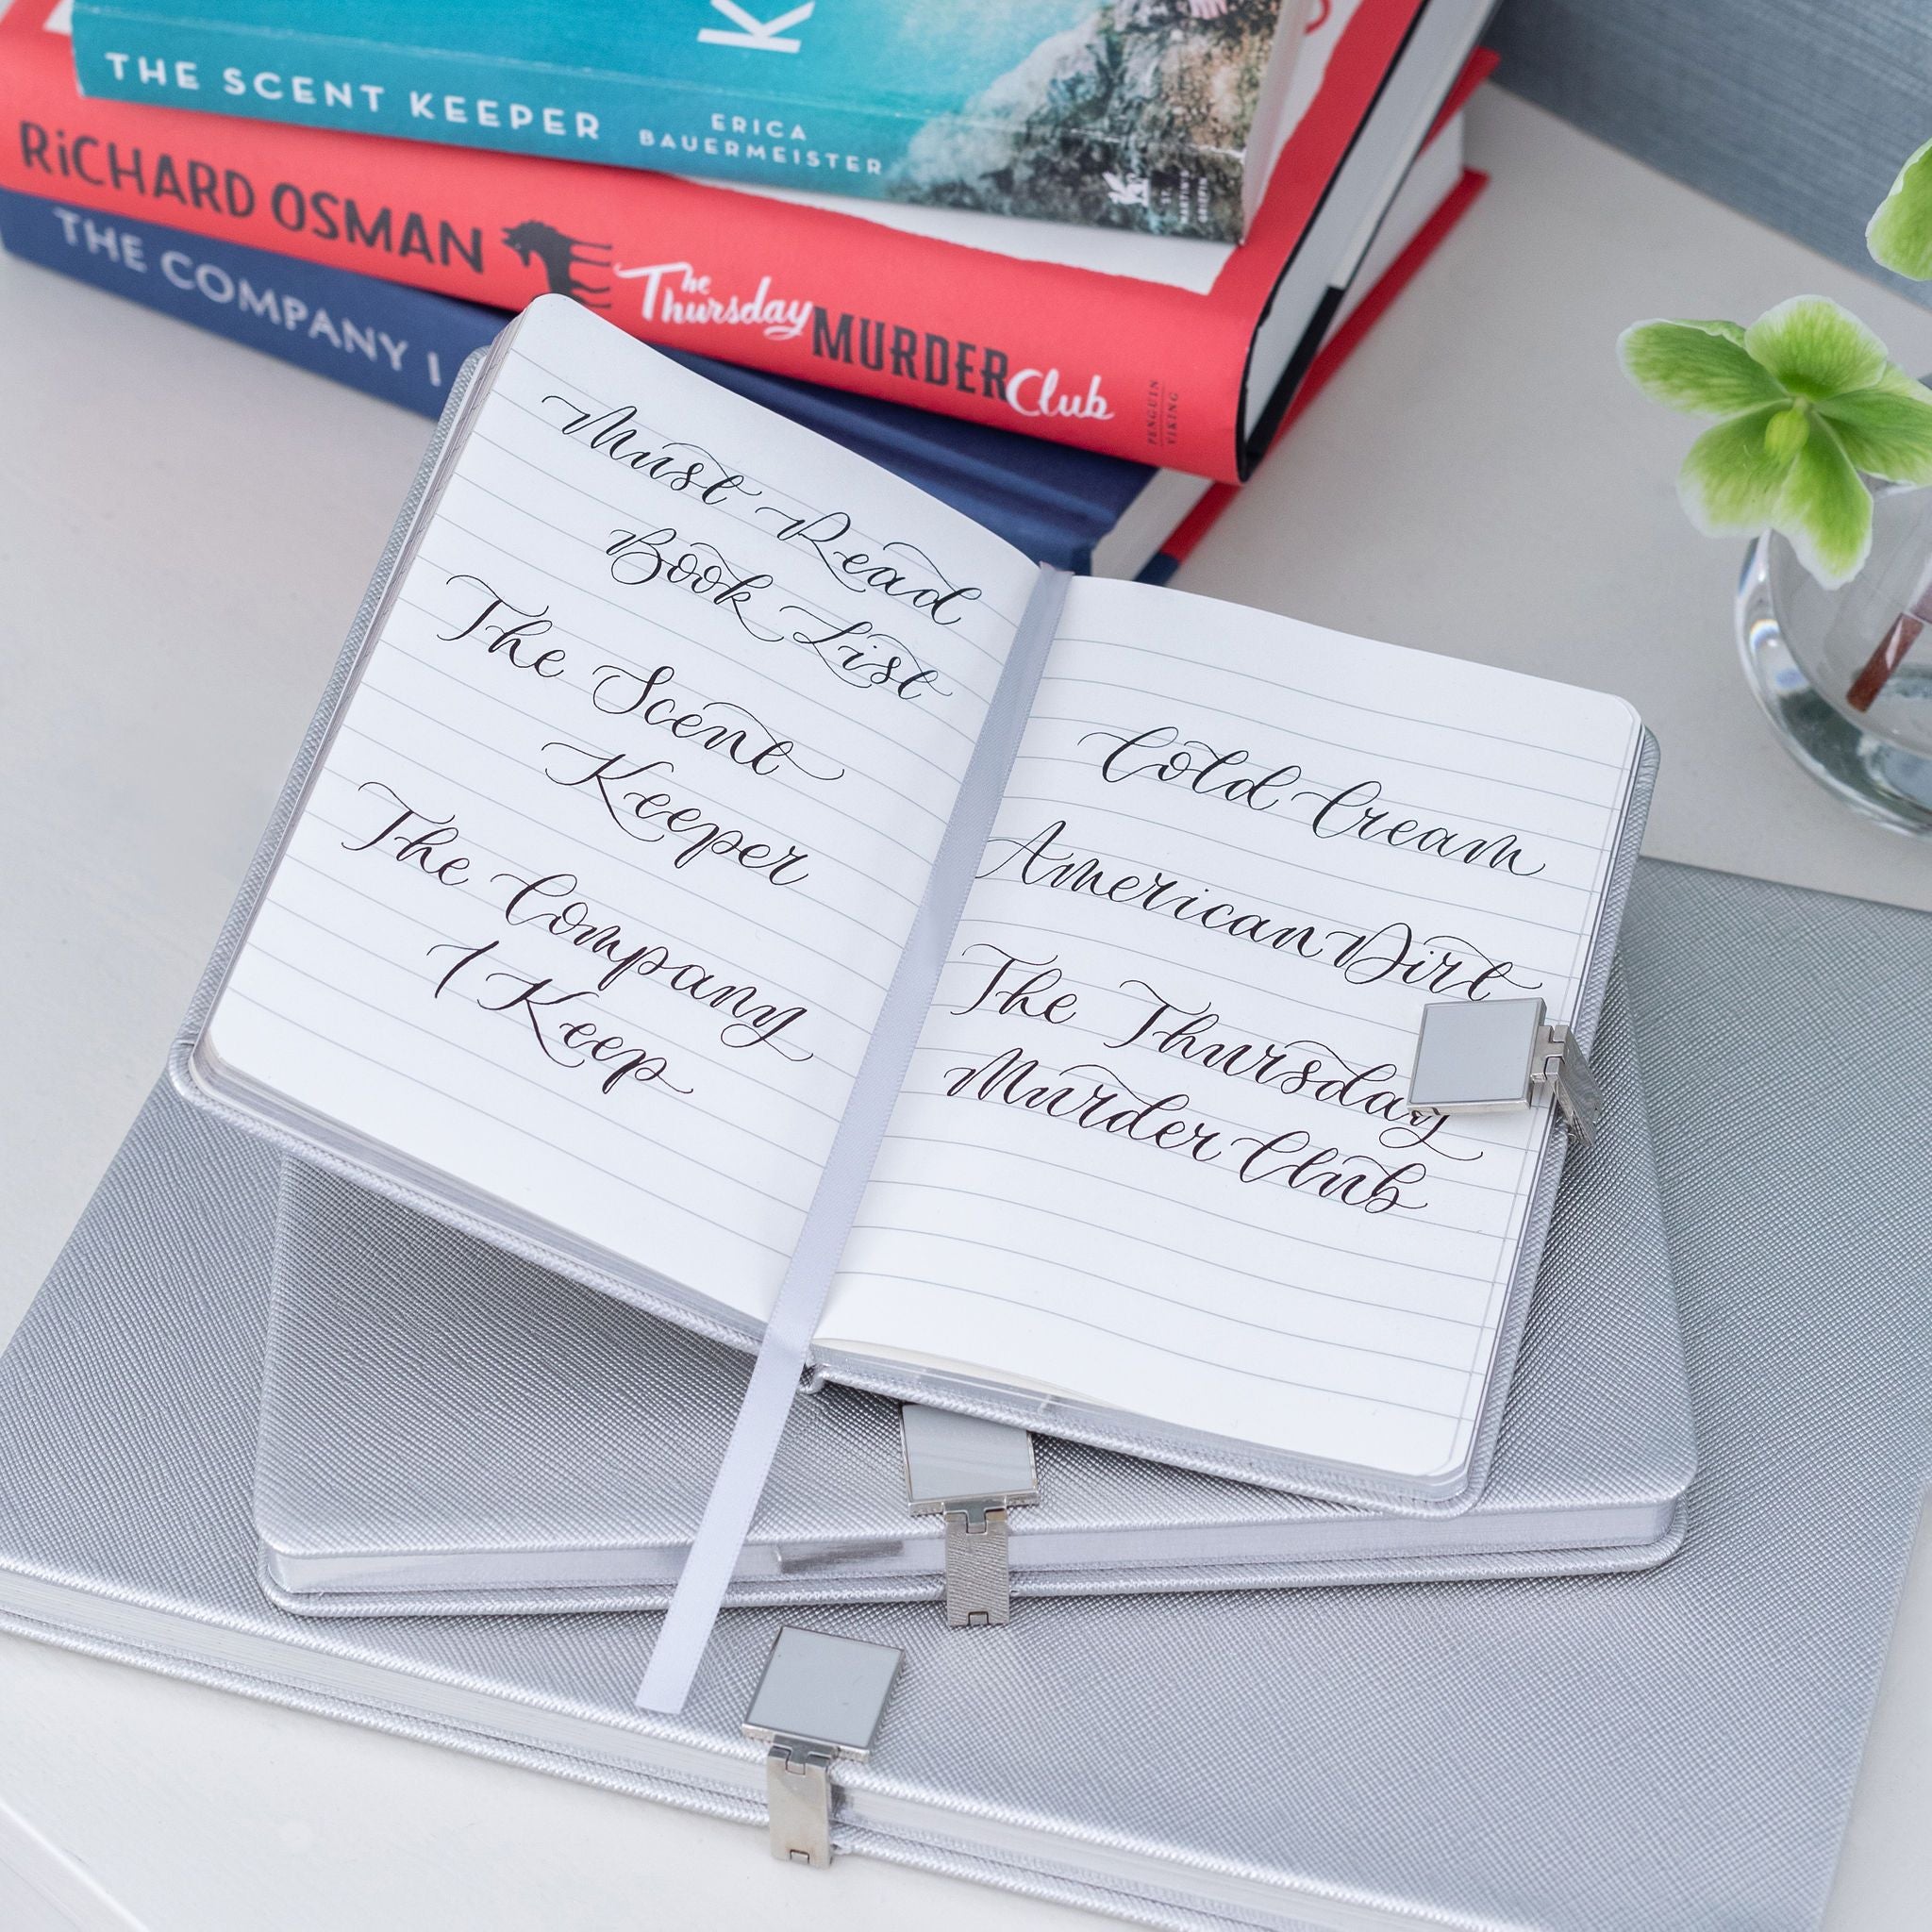 K
THE SCENT KEEPER ERICA BAUERMEISTER
ST. MARTIN'S GRIFFIN
RiCHARD OSMAN The Thursday MURDER Club PENGUIN VIKING
THE COMPANY I
Must Read
Book List
The Scent
Keeper
The Company
I Keep
Cold Cream
American Dirt
The Thursday
Murder Club